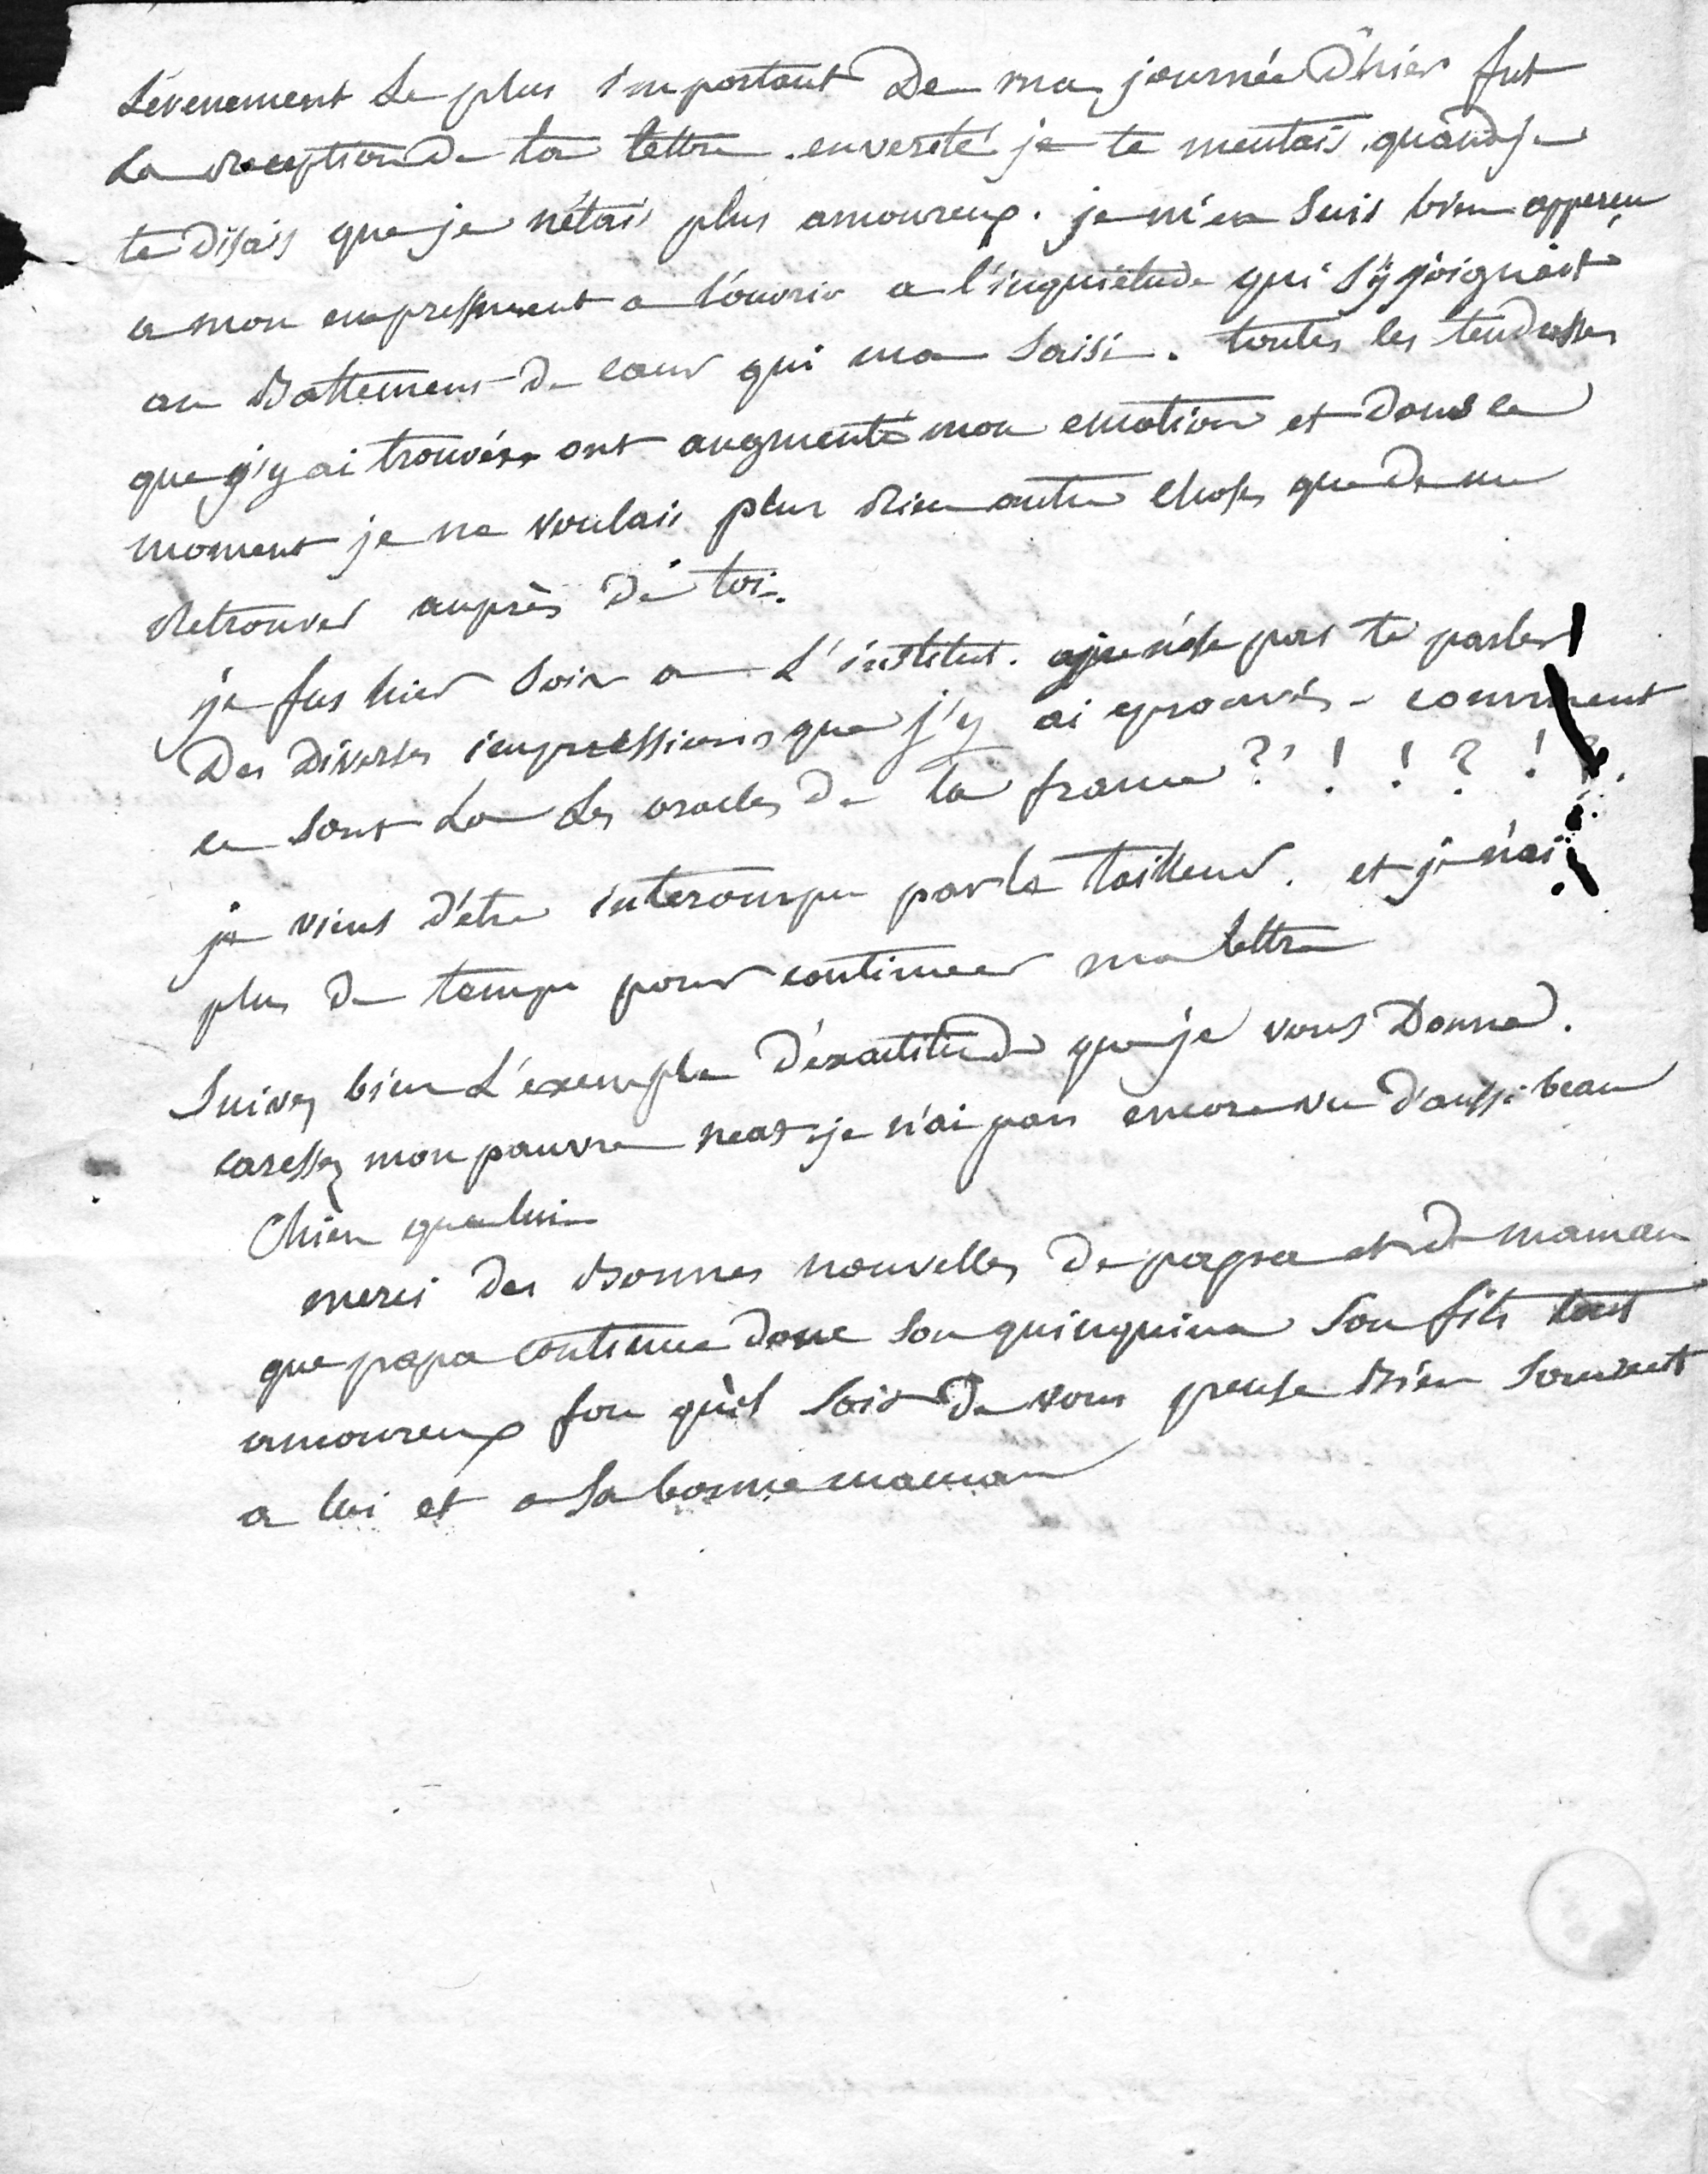 L'évenement le plus important de ma journée d'hier fut
la reception de ta lettre. en verité je te mentais quand je
te disais que je n'étais plus amoureux. je m'en suis bien apperçu
a mon empressement a l'ouvrir a l'inquiétude qui s'y joignait
au battemens de cœur qui ma saisi. toutes les tendresses
que j'y ai trouvées ont augmenté mon emotion et dans ce
moment je ne voulais plus rien autre chose que de me
retrouver auprès de toi.
je fus hier soir a l'institut. je n'ose pas te parler
des diverses impressions que j'y ai eprouvés - comment
ce sont la les oracles de la france ? ! ! ? ! ?.
je viens d'être interompu par le tailleur. et je n'ai
plus de temps pour continuer ma lettre
Suivez bien l'exemple d'exactitude que je vous donne.
caressez mon pauvre je n'ai pas encore vu d'aussi beau
chien que lui
merci des bonnes nouvelles de papa et de maman
que papa continue donc son quinquina son fils tout
amoureux fou qu'il soit de vous pense bien souvent
a lui et a sa bonne maman